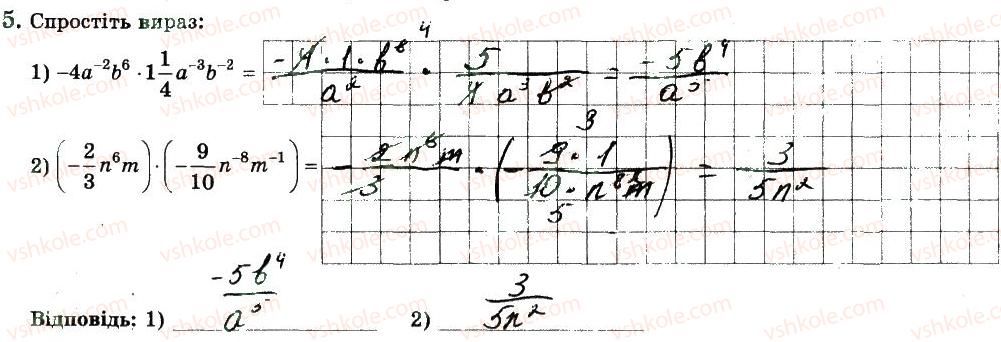 5. Спростіть вираз:
1) −4a⁻²b⁶ · 1 1/4 a⁻³b⁻² = (−4 · 1 · b⁶)/a² · 5/(4 a³ b²) = (−5b⁴)/a⁵
2) (−2/3 n⁶m) · (−9/10 n⁻⁸m⁻¹) = −(2 n⁶ m)/3 · (−(9 · 1)/(10 · n⁸ m)) = 3/(5n²)
Відповідь: 1) (−5b⁴)/a⁵ 2) 3/(5n²)